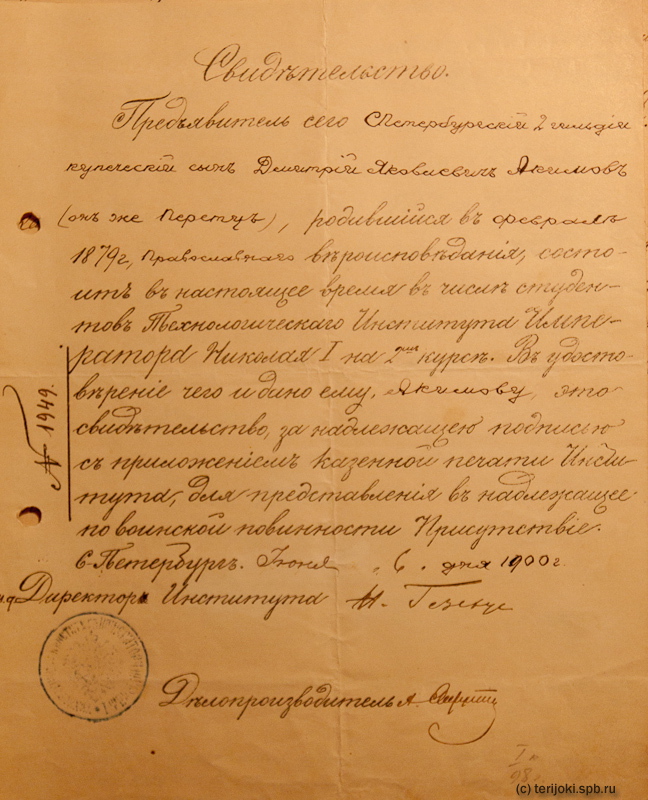 Свидѣтельство.
Предъявитель сего СПетербургскій 2 гильдіи
купеческій сынъ Дмитрій Яковлевичъ Акимовъ
(онъ же Перетцъ), родившійся въ февралѣ
1879 г, Православнаго вѣроисповѣданія, состо-
итъ въ настоящее время въ числѣ студен-
товъ Технологическаго Института Импе-
ратора Николая I на 2омъ курсѣ. Въ удосто-
вѣреніе чего и дано ему, Акимову, это
свидѣтельство, за надлежащею подписью
съ приложеніемъ казенной печати Инсти-
тута, для представленія въ надлежащее
по воинской повинности Присутствіе.
С-Петербургъ. Іюня 6. дня 1900 г.
И.д. Директора Института
Дѣлопроизводитель А.
№ 1949.
(c) terijoki.spb.ru